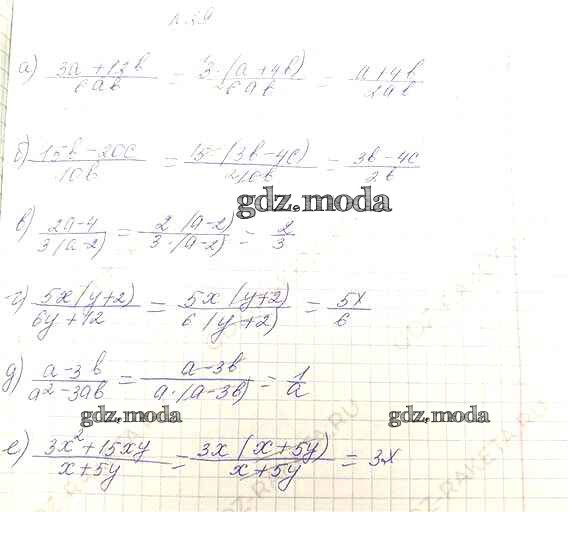 а) 3a+12b / 6ab = 3·(a+4b) / 6ab = a+4b / 2ab
б) 15b-20c / 10b = 5·(3b-4c) / 10b = 3b-4c / 2b
gdz.moda
в) 2a-4 / 3(a-2) = 2(a-2) / 3·(a-2) = 2 / 3
г) 5x(y+2) / 6y+12 = 5x(y+2) / 6(y+2) = 5x / 6
д) a-3b / a²-3ab = a-3b / a·(a-3b) = 1 / a
gdz.moda gdz.moda
е) 3x²+15xy / x+5y = 3x(x+5y) / x+5y = 3x